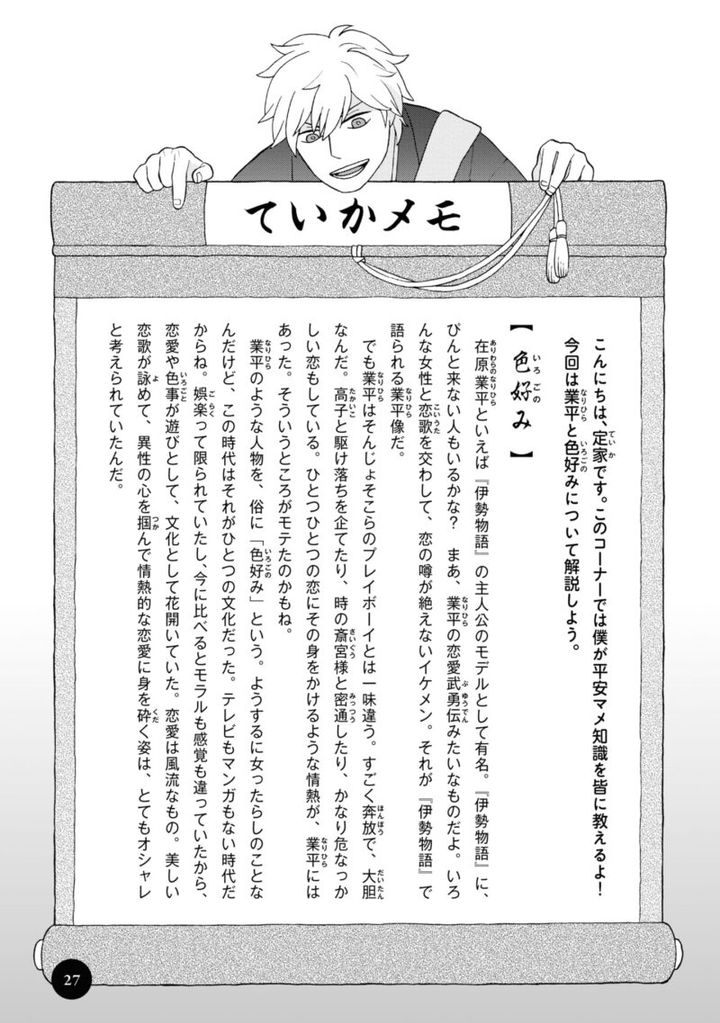 ていかメモ
こんにちは、定家です。このコーナーでは僕が平安マメ知識を皆に教えるよ！
今回は業平と色好みについて解説しよう。
【色好み】
在原業平といえば『伊勢物語』の主人公のモデルとして有名。『伊勢物語』に、
ぴんと来ない人もいるかな？　まあ、業平の恋愛武勇伝みたいなものだよ。いろ
んな女性と恋歌を交わして、恋の噂が絶えないイケメン。それが『伊勢物語』で
語られる業平像だ。
でも業平はそんじょそこらのプレイボーイとは一味違う。すごく奔放で、大胆
なんだ。高子と駆け落ちを企てたり、時の斎宮様と密通したり、かなり危なっか
しい恋もしている。ひとつひとつの恋にその身をかけるような情熱が、業平には
あった。そういうところがモテたのかもね。
業平のような人物を、俗に「色好み」という。ようするに女ったらしのことな
んだけど、この時代はそれがひとつの文化だった。テレビもマンガもない時代だ
からね。娯楽って限られていたし、今に比べるとモラルも感覚も違っていたから、
恋愛や色事が遊びとして、文化として花開いていた。恋愛は風流なもの。美しい
恋歌が詠めて、異性の心を掴んで情熱的な恋愛に身を砕く姿は、とてもオシャレ
と考えられていたんだ。
27